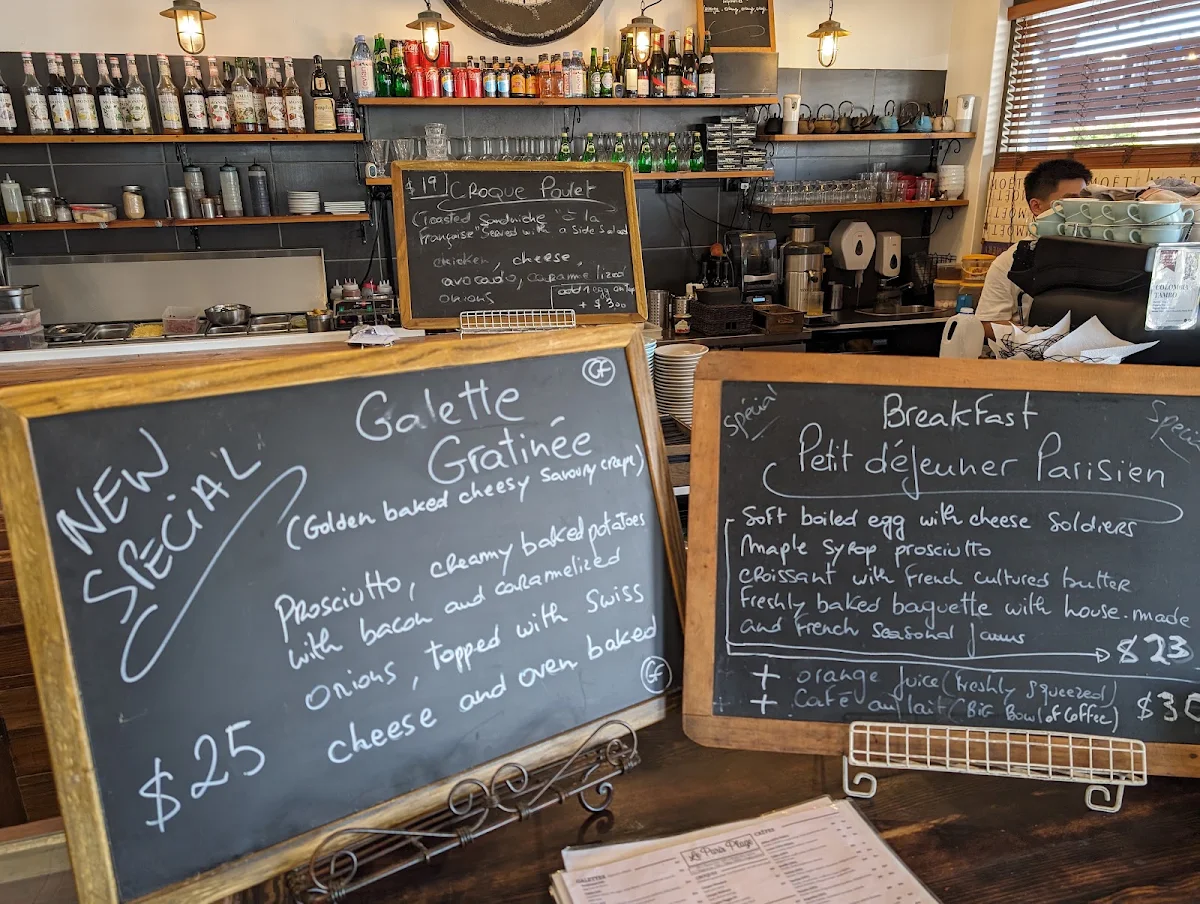 $19 CROQUE Poulet
(Toasted Sandwiche "à la
Française" Served with a Side Salad
chicken, cheese,
avocado, caramelized
onions
add egg on top
+ $3.00
GF
NEW
SPECIAL
Galette
Gratinée
(Golden baked cheesy savoury crepe)
Prosciutto, creamy baked potatoes
with bacon and caramelized
onions, topped with Swiss
cheese and oven baked
GF
$25
Spécial
BreakFast
Petit déjeuner Parisien
Soft boiled egg with cheese Soldiers
maple syrop prosciutto
croissant with French cultured butter
Freshly baked baguette with house.made
and French seasonal Jams
$23
+ orange juice (freshly squeezed)
+ Café au lait (BIG Bowl of Coffee) $30
Le Paris Plage
GALETTES
CRÊPES
COLOMBIA
TAMBO
MOËT